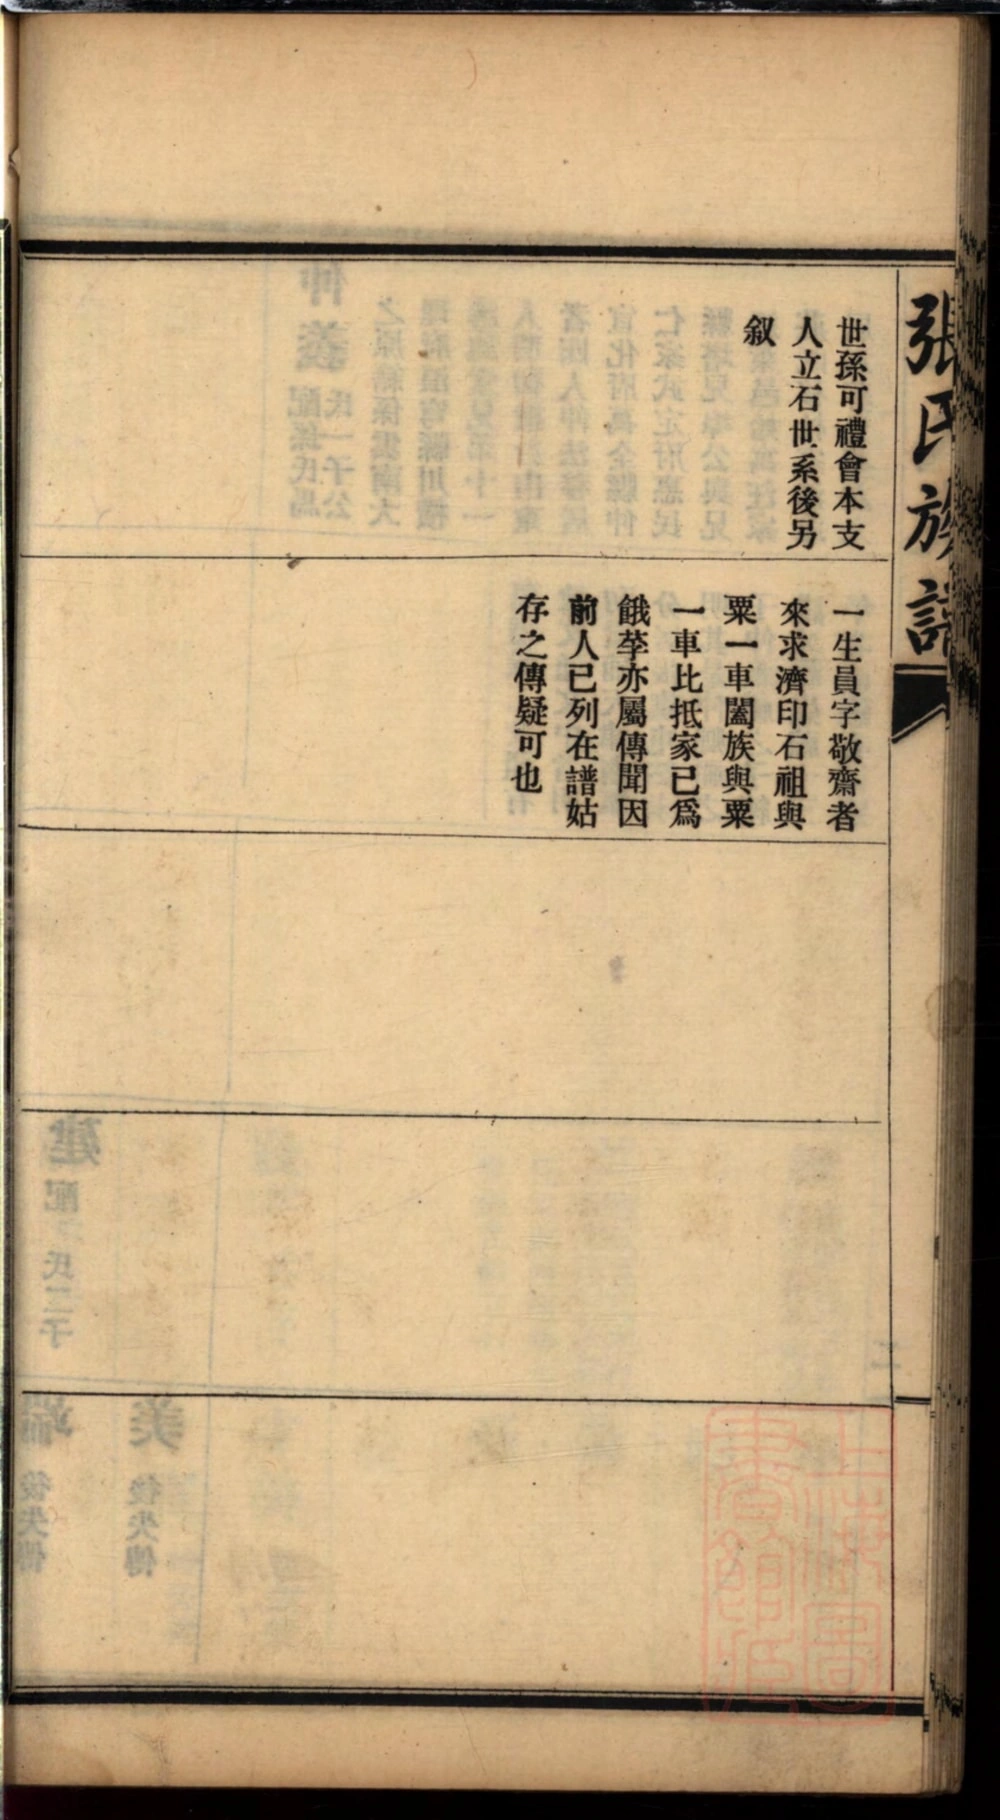 張氏族譜
世孫可禮會本支
人立石世系後另
叙
一生員字敬齋者
來求濟印石祖與
粟一車闔族與粟
一車比抵家已爲
餓莩亦屬傳聞因
前人已列在譜姑
存之傳疑可也
上海圖書館藏